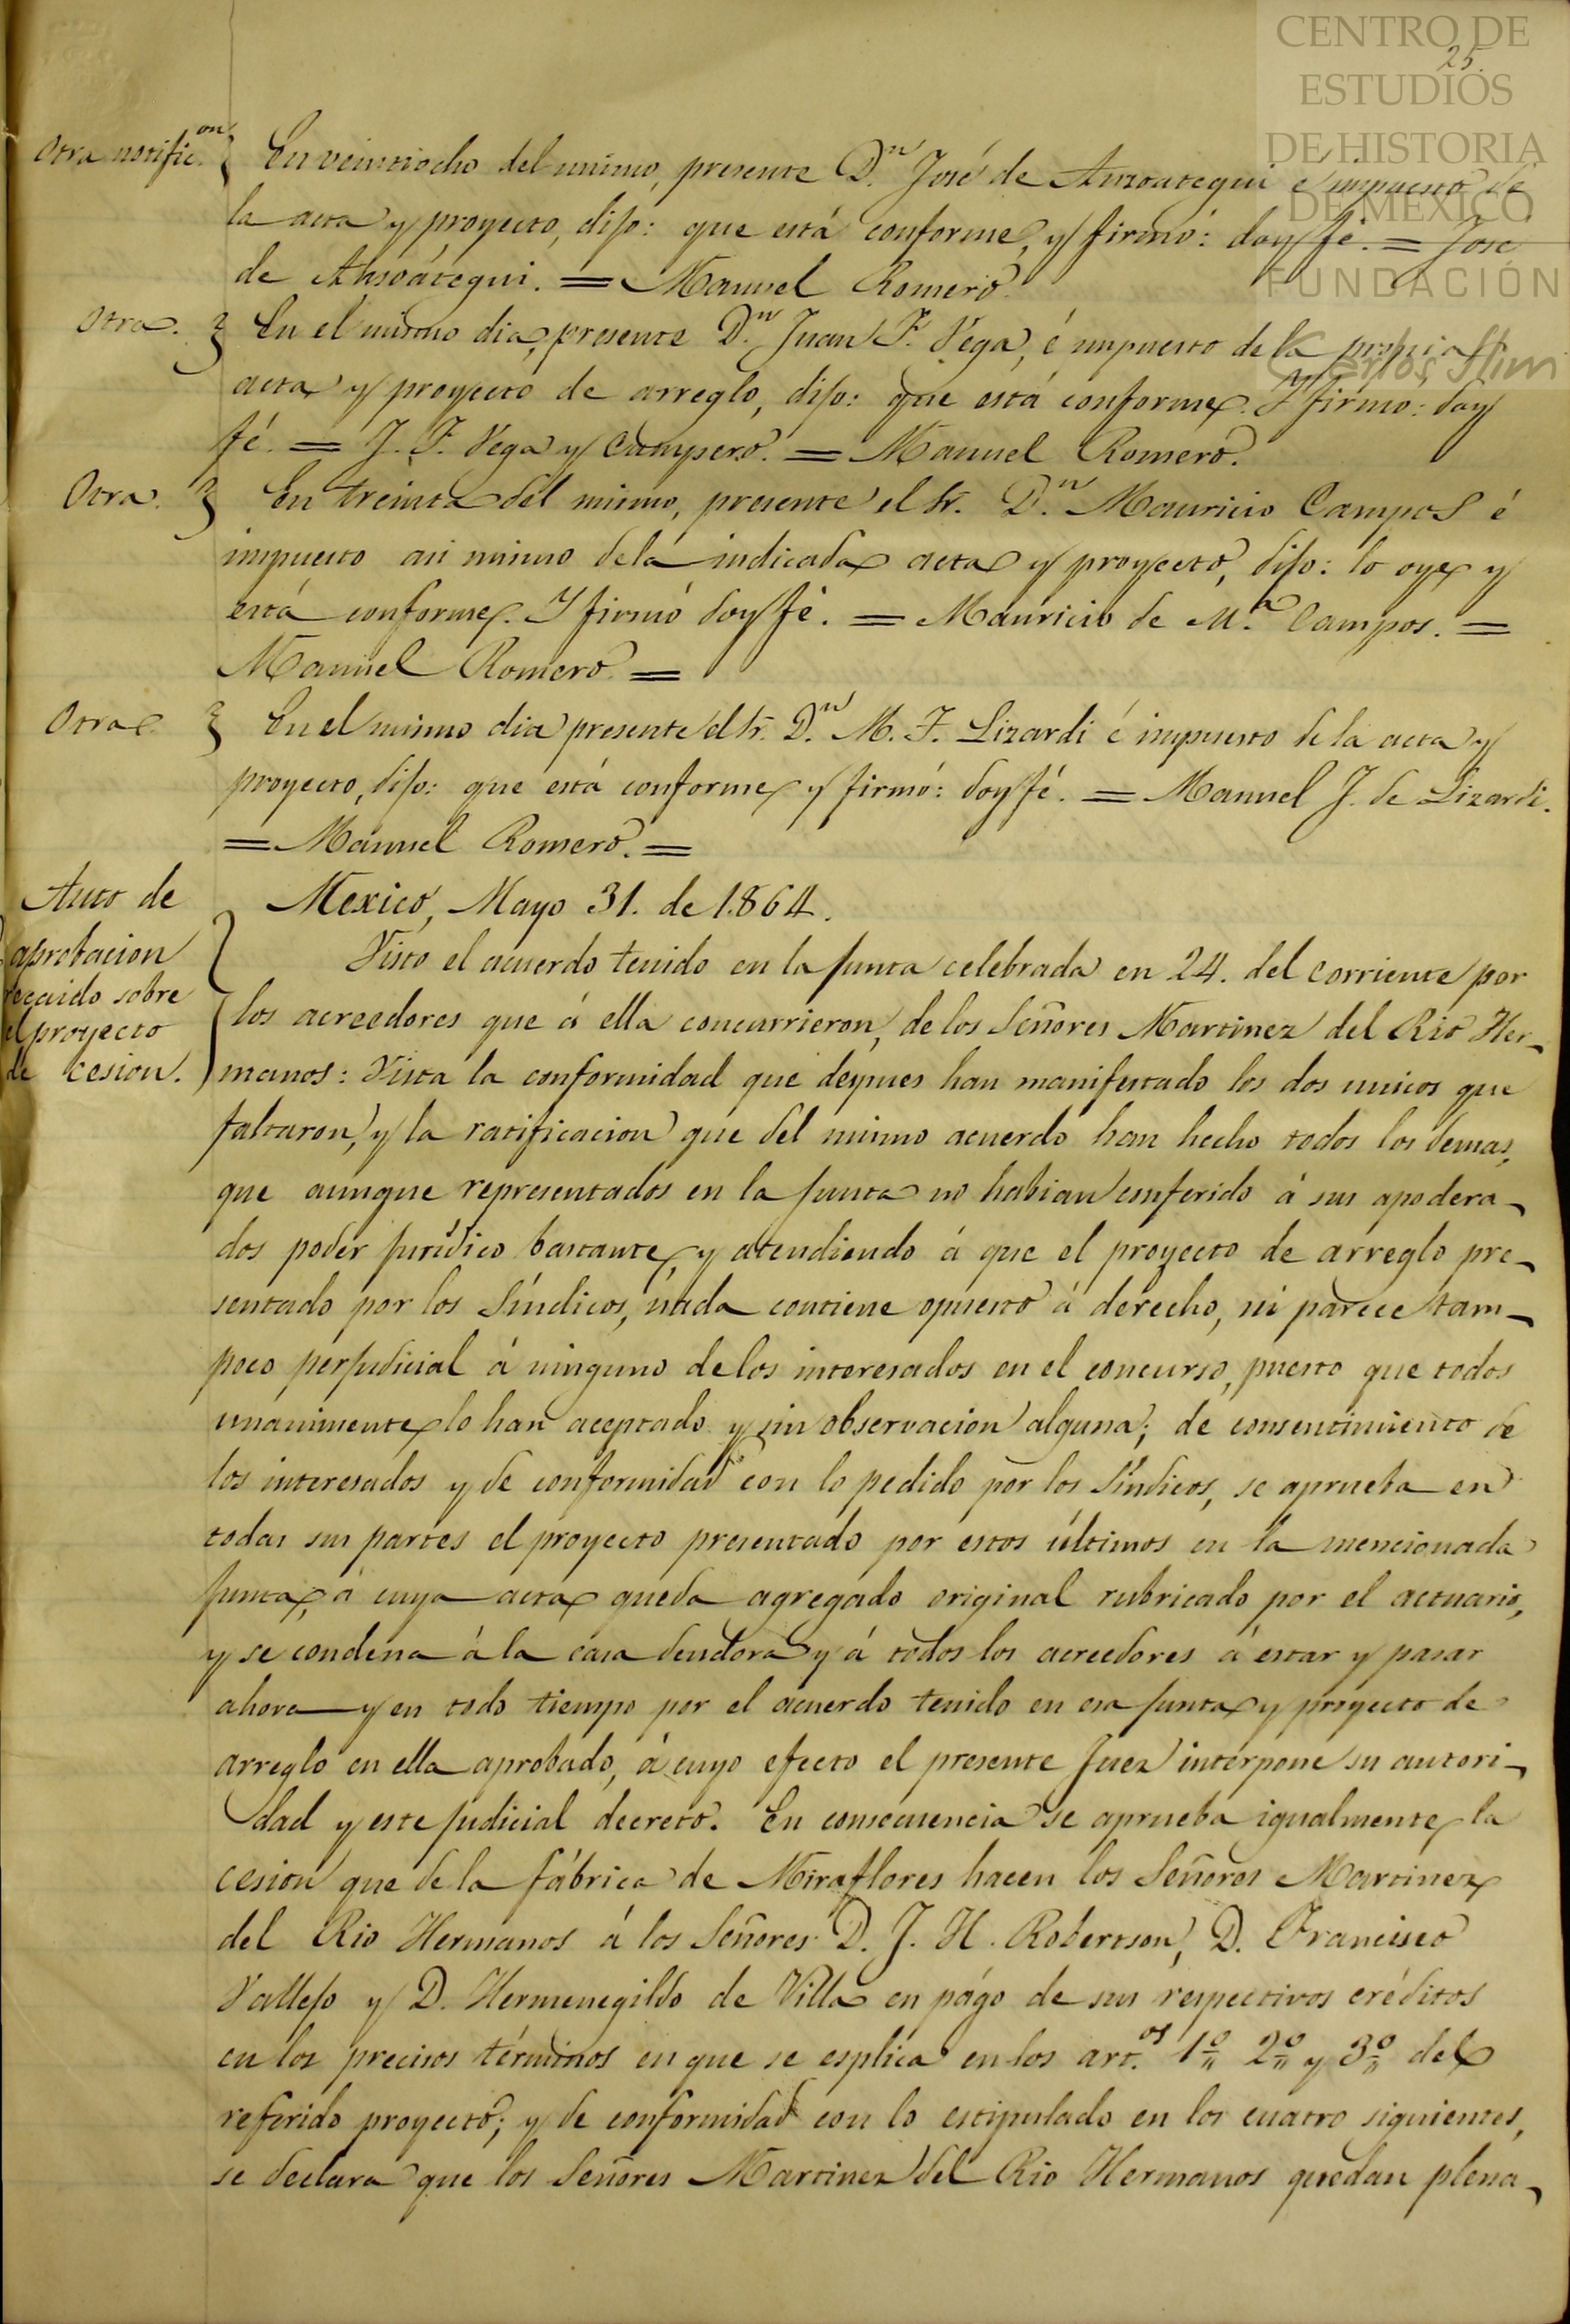 CENTRO DE
ESTUDIOS
DE HISTORIA
DE MÉXICO
FUNDACIÓN
Carlos Slim
25.
Otra notific.on
En veintiocho del mismo, presente D.n José de Anzoategui é impuesto de
la acta y proyecto, dijo: que está conforme, y firmó: doy fé. = José
de Ansoátegui. = Manuel Romero.
Otra.
En el mismo dia, presente D.n Juan F. Vega, é impuesto de la propia
acta y proyecto de arreglo, dijo: que está conforme. Y firmo: doy
fé. = J. F. Vega y Campero. = Manuel Romero.
Otra.
En treinta del mismo, presente el Sr. D.n Mauricio Campos é
impuesto asi mismo de la indicada acta y proyecto, dijo: lo oye y
está conforme. Y firmó doy fé. = Mauricio de M.a Campos. =
Manuel Romero. =
Otra
En el mismo dia presente el Sr. D.n M. J. Lizardi é impuesto de la acta y
proyecto, dijo: que está conforme y firmó: doy fé. = Manuel J. de Lizardi.
= Manuel Romero. =
Auto de
aprobacion
recaido sobre
el proyecto
de cesion.
Mexico, Mayo 31. de 1.864.
Visto el acuerdo tenido en la junta celebrada en 24. del corriente por
los acreedores que á ella concurrieron, de los Señores Martinez del Rio Her-
manos: Vista la conformidad que despues han manifestado los dos unicos que
faltaron, y la ratificacion que del mismo acuerdo han hecho todos los demas,
que aunque representados en la junta no habian conferido á sus apodera-
dos poder jurídico bastante, y atendiendo á que el proyecto de arreglo pre-
sentado por los Síndicos, nada contiene opuesto á derecho, ni parece tam-
poco perjudicial á ninguno de los interesados en el concurso, puesto que todos
unanimente lo han aceptado y sin observacion alguna; de consentimiento de
los interesados y de conformidad con lo pedido por los Síndicos, se aprueba en
todas sus partes el proyecto presentado por estos últimos en la mencionada
junta, á cuya acta queda agregado original rubricado por el actuario,
y se condena á la casa deudora y á todos los acreedores á estar y pasar
ahora y en todo tiempo por el acuerdo tenido en esa junta y proyecto de
arreglo en ella aprobado, á cuyo efecto el presente Juez interpone su autori-
dad y este judicial decreto. En consecuencia se aprueba igualmente la
cesion que de la fábrica de Miraflores hacen los Señores Martinez
del Rio Hermanos á los Señores D. J. H. Robertson, D. Francisco
Vallejo y D. Hermenegildo de Villa en págo de sus respectivos créditos
en los precisos términos en que se esplica en los art.os 1º 2º y 3º del
referido proyecto; y de conformidad con lo estipulado en los cuatro siguientes,
se declara que los Señores Martinez del Rio Hermanos quedan plena-